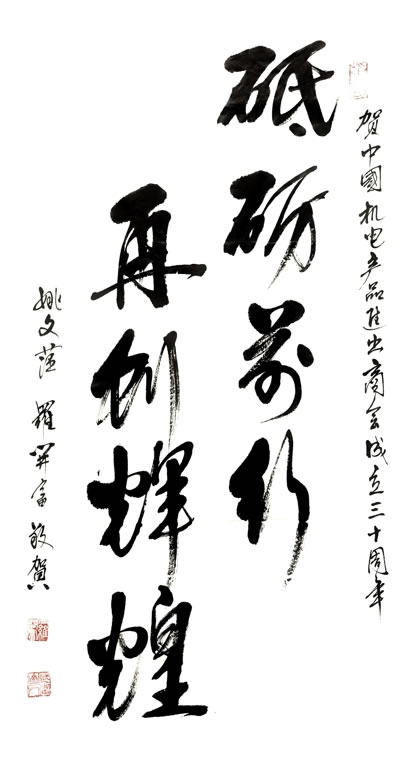 贺中國机电产品進出商会成立三十周年
砥砺前行
再创輝煌
姚文萍 羅開富 敬贺